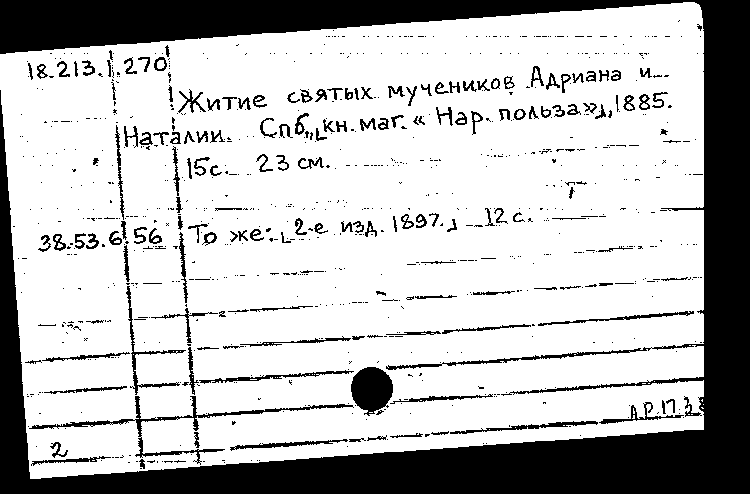 18.213.1.270
Житие святых мучеников Адриана и
Наталии. Спб., ⌊кн. маг. « Нар. польза»⌋, 1885.
15с. 23 см.
38.53.6.56 То же: ⌊2-е изд. 1897.⌋ 12 с.
А.Р. 17.3.8
2